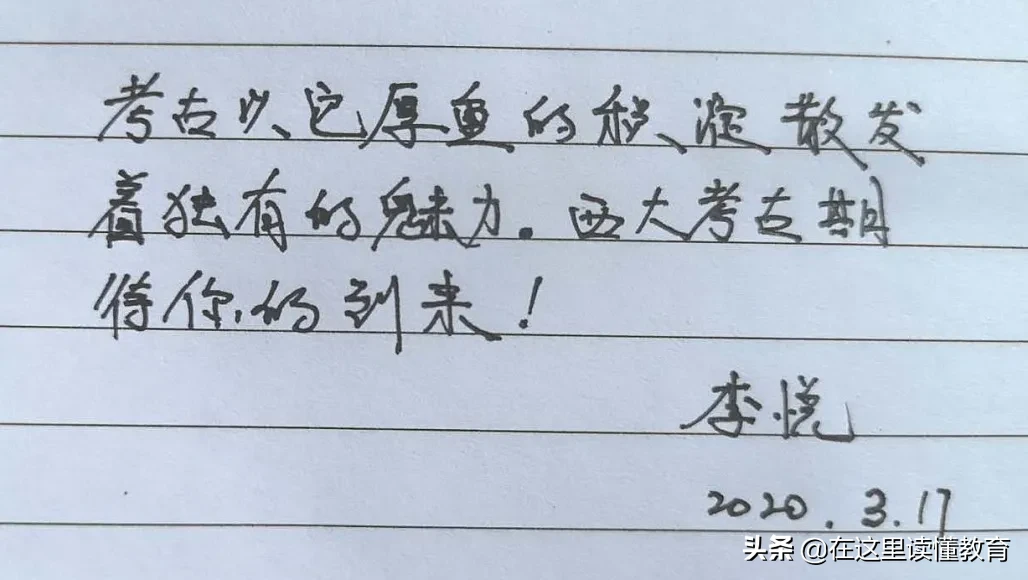 考古以它厚重的积淀散发
着独有的魅力。西大考古期
待你的到来！
李悦
2020.3.17
头条 @在这里读懂教育